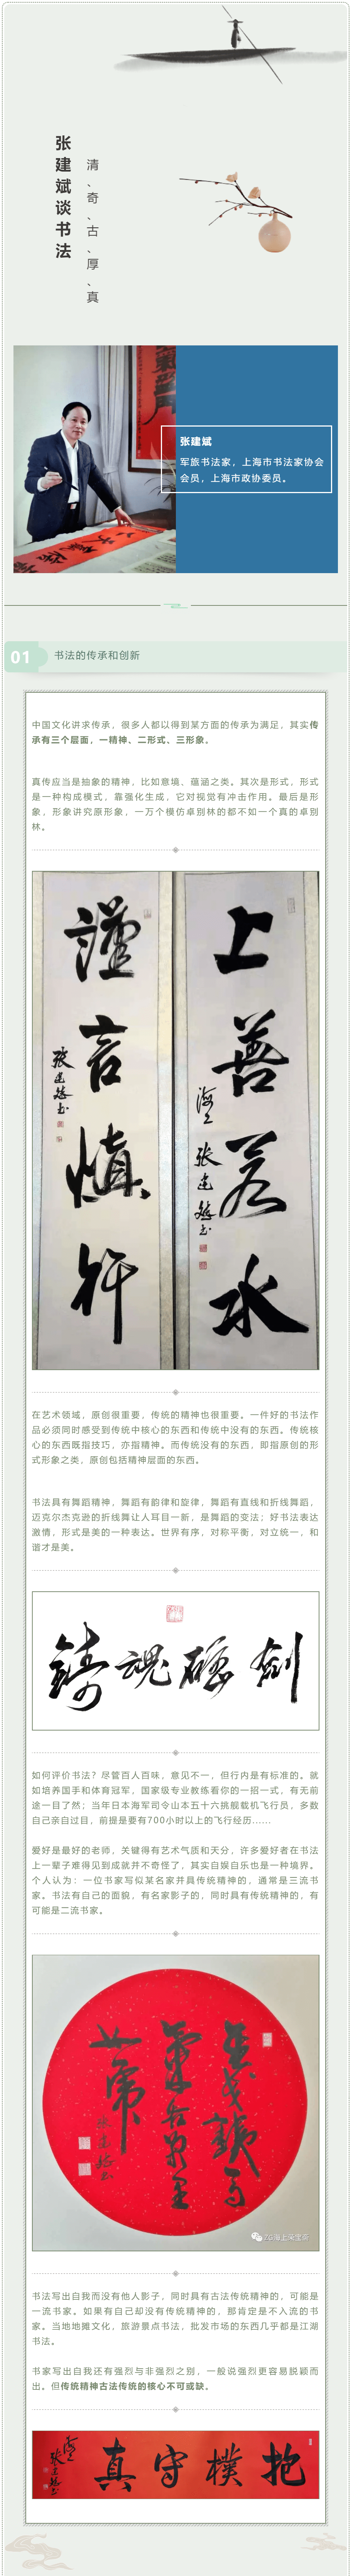 张建斌谈书法
清、奇、古、厚、真
张建斌
军旅书法家，上海市书法家协会
会员，上海市政协委员。
01
书法的传承和创新
中国文化讲求传承，很多人都以得到某方面的传承为满足，其实传
承有三个层面，一精神、二形式、三形象。
真传应当是抽象的精神，比如意境、蕴涵之类。其次是形式，形式
是一种构成模式，靠强化生成，它对视觉有冲击作用。最后是形
象，形象讲究原形象，一万个模仿卓别林的都不如一个真的卓别
林。
上善若水
海上 张建斌书
谨言慎行
张建斌书
在艺术领域，原创很重要，传统的精神也很重要。一件好的书法作
品必须同时感受到传统中核心的东西和传统中没有的东西。传统核
心的东西既指技巧，亦指精神。而传统没有的东西，即指原创的形
式形象之类，原创包括精神层面的东西。
书法具有舞蹈精神，舞蹈有韵律和旋律，舞蹈有直线和折线舞蹈，
迈克尔杰克逊的折线舞让人耳目一新，是舞蹈的变法；好书法表达
激情，形式是美的一种表达。世界有序，对称平衡，对立统一，和
谐才是美。
铸魂砺剑
如何评价书法？尽管百人百味，意见不一，但行内是有标准的。就
如培养国手和体育冠军，国家级专业教练看你的一招一式，有无前
途一目了然；当年日本海军司令山本五十六挑舰载机飞行员，多数
自己亲自过目，前提是要有700小时以上的飞行经历……
爱好是最好的老师，关键得有艺术气质和天分，许多爱好者在书法
上一辈子难得见到成就并不奇怪了，其实自娱自乐也是一种境界。
个人认为：一位书家写似某名家并具传统精神的，通常是三流书
家。书法有自己的面貌，有名家影子的，同时具有传统精神的，有
可能是二流书家。
金戈铁马
气吞万里
如虎
张建斌书
ZG海上荣宝斋
书法写出自我而没有他人影子，同时具有古法传统精神的，可能是
一流书家。如果有自己却没有传统精神的，那肯定是不入流的书
家。当地地摊文化，旅游景点书法，批发市场的东西几乎都是江湖
书法。
书家写出自我还有强烈与非强烈之别，一般说强烈更容易脱颖而
出。但传统精神古法传统的核心不可或缺。
抱朴守真
海上
张建斌书